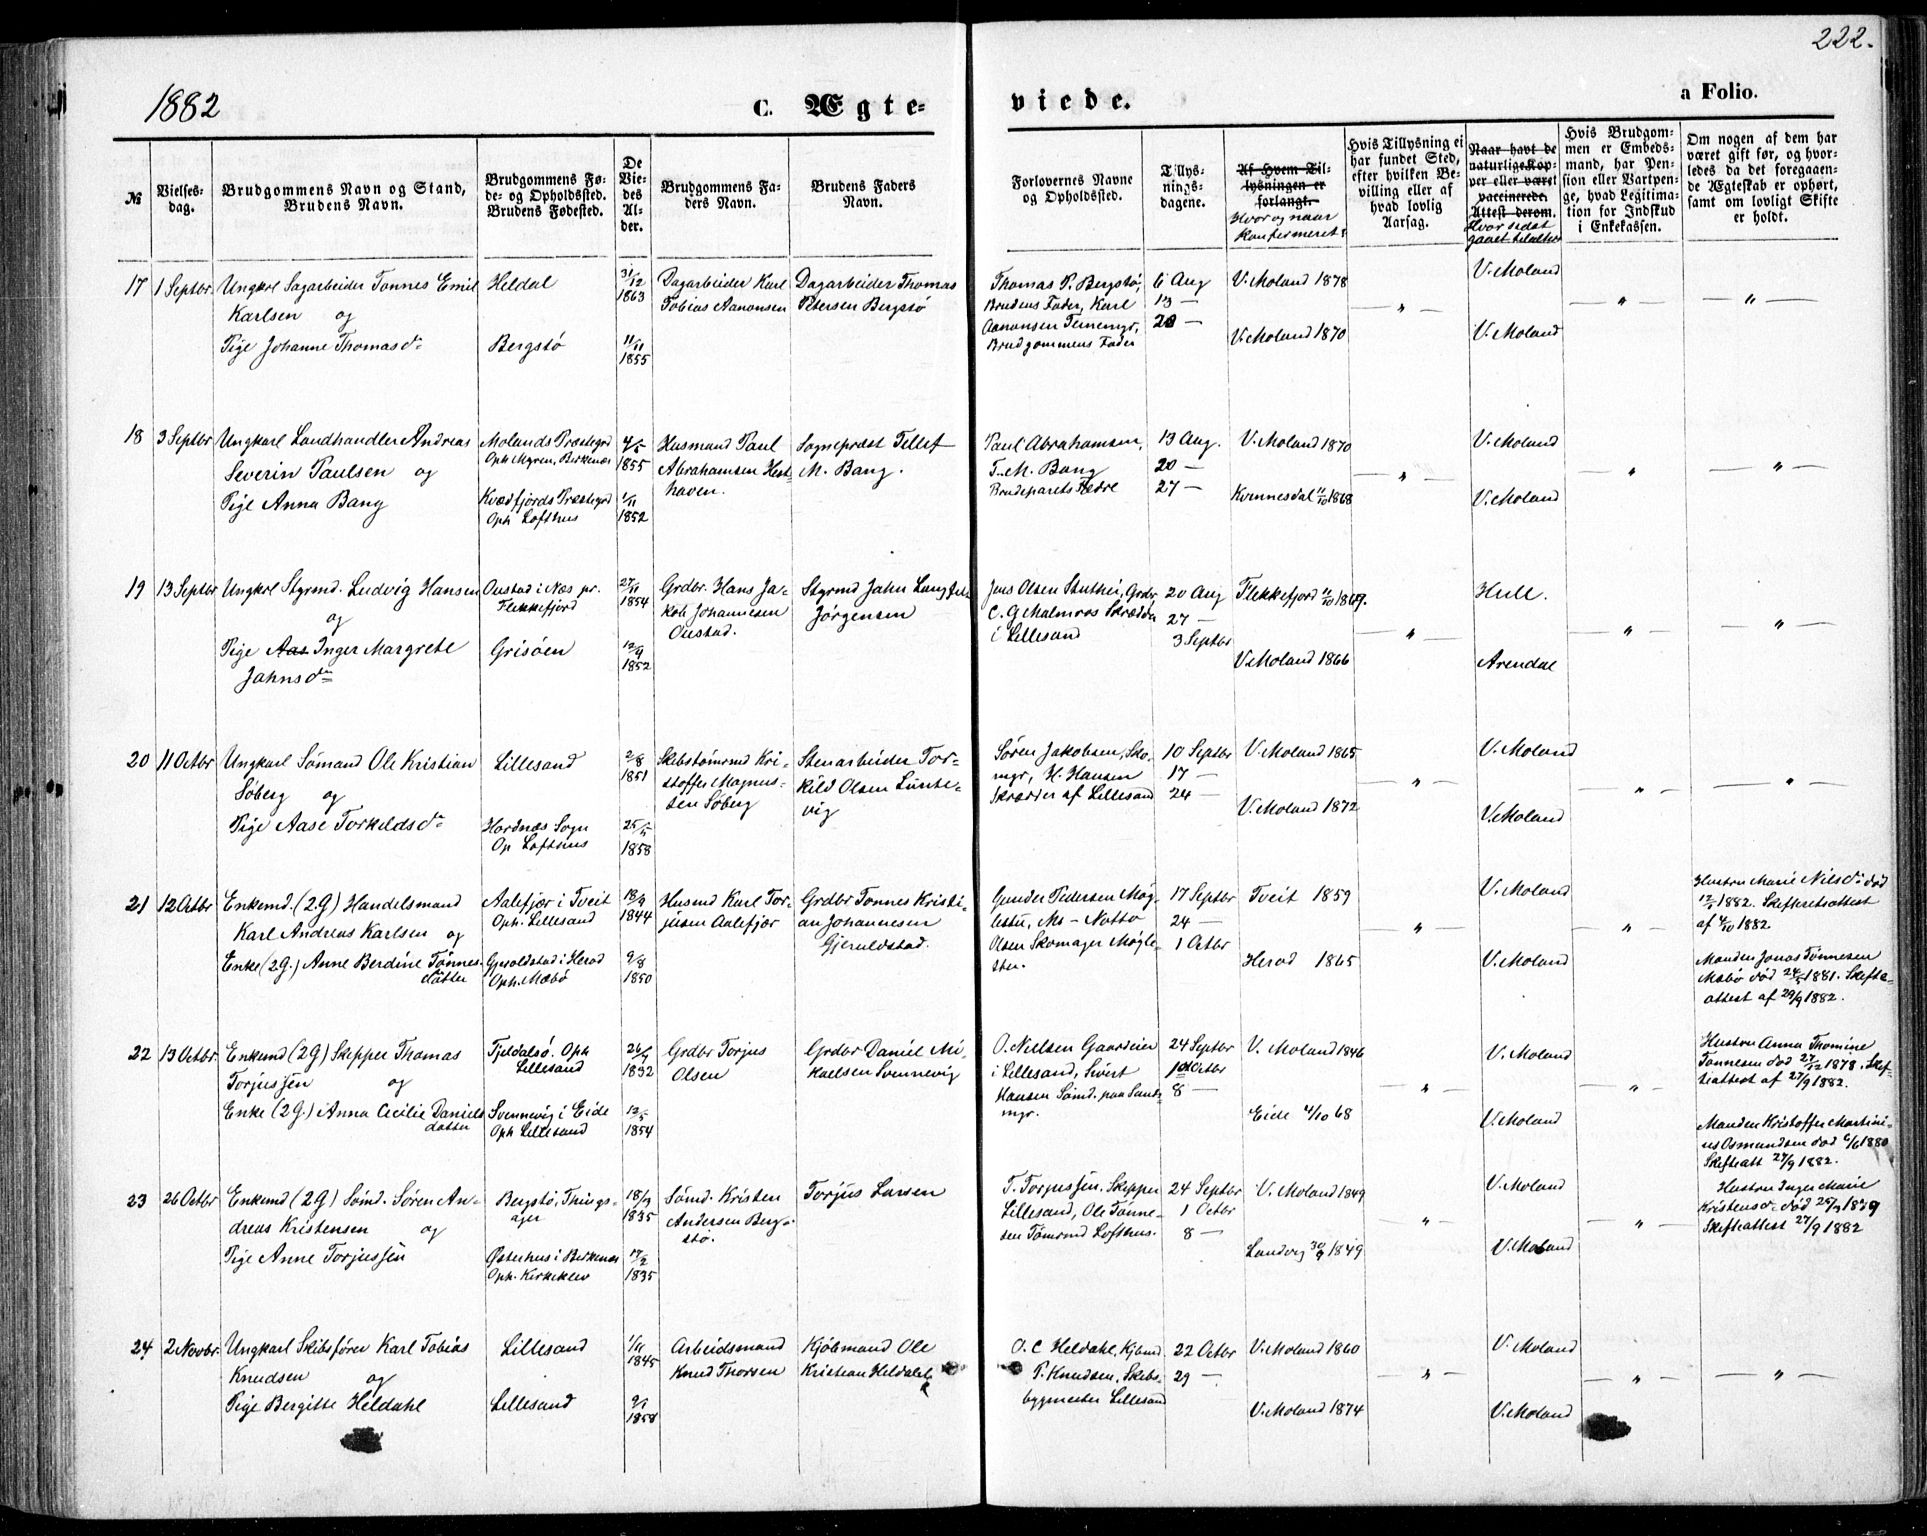 222.
1882
C. Ægte-
viede.
a Folio.
№
Vielses-
dag.
Brudgommens Navn og Stand,
Brudens Navn.
Brudgommens Fø-
de- og Opholdssted.
Brudens Fødested.
De
Vie-
des
Al-
der.
Brudgommens Fa-
ders Navn.
Brudens Faders
Navn.
Forlovernes Navne
og Opholdssted.
Tillys-
nings-
dagene.
Af Hvem Til-
lysningen er
forlangt.
Hvor og naar
Konfermeret
Hvis Tillysning ei
har fundet Sted,
efter hvilken Be-
villing eller af
hvad lovlig
Aarsag.
Naar havt de
naturlige Kop-
per eller været
vaccinerede.
Attest derom.
Hvor sidst
gaaet til alters
Hvis Brudgom-
men er Embeds-
mand, har Pen-
sion eller Vartpen-
ge, hvad Legitima-
tion for Indskud
i Enkekassen.
Om nogen af dem har
været gift før, og hvor-
ledes da det foregaaen-
de Ægteskab er ophørt,
samt om lovligt Skifte
er holdt.
17 1 Septbr. Ungkrl Sagarbeider Tønnes Emil
Karlsen og
Pige Johanne Thomasd.
Heldal
Bergstø
31/12
1863
11/11
1855
Dagarbeider Karl
Tobias Aanonsen
Dagarbeider Thomas
Petersen Bergstø
Thomas P. Bergstø,
Brudens Fader, Karl
Aanonsen
Brudgommens Fader
6 Aug
13 —
20 —
V. Moland 1878
V. Moland 1870
— " —
V. Moland
V. Moland
— " —
— " —
18 3 Septbr Ungkarl Landhandler Andreas
Severin Paulsen og
Pige Anna Bang
Molands Præstegrd
Oph Myren, Birkenæs
Kvædfjords Præstegrd
Oph Lofthus
4/5
1855
1/11
1852
Husmand Paul
Abrahamsen Hest-
haven.
Sogneprest Tellef
M. Bang.
Paul Abrahamsen,
T. M. Bang
Brudeparets Fædre
13 Aug.
20 —
27 —
V. Moland 1870
Kvinnesdal 11/10 1868
— " —
V. Moland
V. Moland
— " —
— " —
19 13 Septbr Ungkrl Styrmd. Ludvig Hansen
og
Pige Aas Inger Margrete
Jahnsd.
Oustad i Næs pr.
Flekkefjord
Grisöen
27/11
1854
12/9
1852
Grdbr. Hans Ja-
kob Johannesen
Oustad.
Styrmd Jahn
Jörgensen
Jens Olsen Grdbr
C. G. Malmros Skrædder
i Lillesand
20 Aug
27 —
3 Septbr
Flekkefjord 11/10 1869.
V. Moland 1866
— " —
Hull.
Arendal
— " —
— " —
20 11 Octbr Ungkarl Sömand Ole Kristian
Söberg og
Pige Aase Torkildsd.
Lillesand
Hordnæs Sogn
Op Lofthus
2/8
1851
25/5
1858
Skibstømrmd Kri-
stoffer Magnus-
sen Söberg
Stenarbeider Tor-
kild Olsen Lunte-
vig
Søren Jakobsen, Sko-
mgr, H. Hansen
Skrædder af Lillesand
10 Septbr
17 —
24 —
V. Moland 1865
V. Moland 1872
— " —
V. Moland
V. Moland
— " —
— " —
21 12 Octbr Enkemd. (2.G) Handelsmand
Karl Andreas Karlsen og
Enke (2G.) Anne Berdine Tønnes-
datter
Aalefjær i Tveit
Oph. Lillesand
Gjeroldstad i Herad
Oph. Mæbø
18/9
1844
9/8
1850
Husmd Karl Tor-
jusen Aalefjær
Grdbr Tønnes Kristi-
an Johannesen
Gjeruldstad.
Gunder Pedersen Møg-
lestu,
Olsen Skomager Møgle-
stu.
17 Septbr
24 —
1 Octbr
Tveit 1859
Herad 1865
— " —
V. Moland
V. Moland
— " —
Hustru Marie Nilsd. død
1882. Skifteretsattest
af 4/10 1882.
Manden Jonas Tønnesen
Mæbø død 24/5 1881. Skifte-
attest af 29/9 1882.
22 13 Octbr. Enkemd (2G) Skipper Thomas
Torjussen og
Enke (2G.) Anna Cecilie Daniels
datter
Tjeldalsö. Oph
Lillesand
Svennevig i Eide
Oph Lillesand
26/9
1832
12/5
1854
Grdbr Torjus
Olsen
Grdbr Daniel Mi-
kaelsen Svennevig
O. Nielsen Gaardeier
i Lillesand, Sivert
Hansen Sømd. paa Sand-
mgr.
24 Septbr
1 Octbr
8 —
V. Moland 1846
Eide 4/10 68
— " —
V. Moland
V. Moland
— " —
Hustru Anna Thomine
Tønnesen død 27/12 1878. Skif-
teattest af 27/9 1882.
Manden Kristoffer Martini-
us Osmundsen død 6/6 1880
Skifteatt 27/9 1882.
23 26 Octbr Enkemd (2G) Sømd. Søren An-
dreas Kristensen og
Pige Anne Torjussen
Bergstø, Things-
ager
Østerhus i Birkenæs
Oph. Kirkeklev
18/9
1835
17/2
1835
Sømd. Kristen
Andersen Berg-
stø.
Torjus Larsen
T. Torjussen, Skipper
Lillesand, Ole Tønne-
sen Tømrmd Lofthus.
24 Septbr
1 Octbr
8 —
V. Moland 1849
Landvig 30/9 1849
— " —
V. Moland
V. Moland
— " —
Hustru Inger Marie
Kristensd. død 25/3 1879
Skifteattest 27/9 1882
24 2 Novbr. Ungkarl Skibsfører Karl Tobias
Knudsen og
Pige Bergitte Heldahl
Lillesand
Lillesand
1/11
1845
9/1
1858
Arbeidsmand
Knud Thorsen
Kjøbmand Ole
Kristian Heldahl
O. C Heldahl, Kjbmd
P. Knudsen, Skibs-
bygmester Lillesand
22 Octbr
29 —
V. Moland 1860
V. Moland 1874
— " —
V. Moland
V. Moland
— " —
— " —